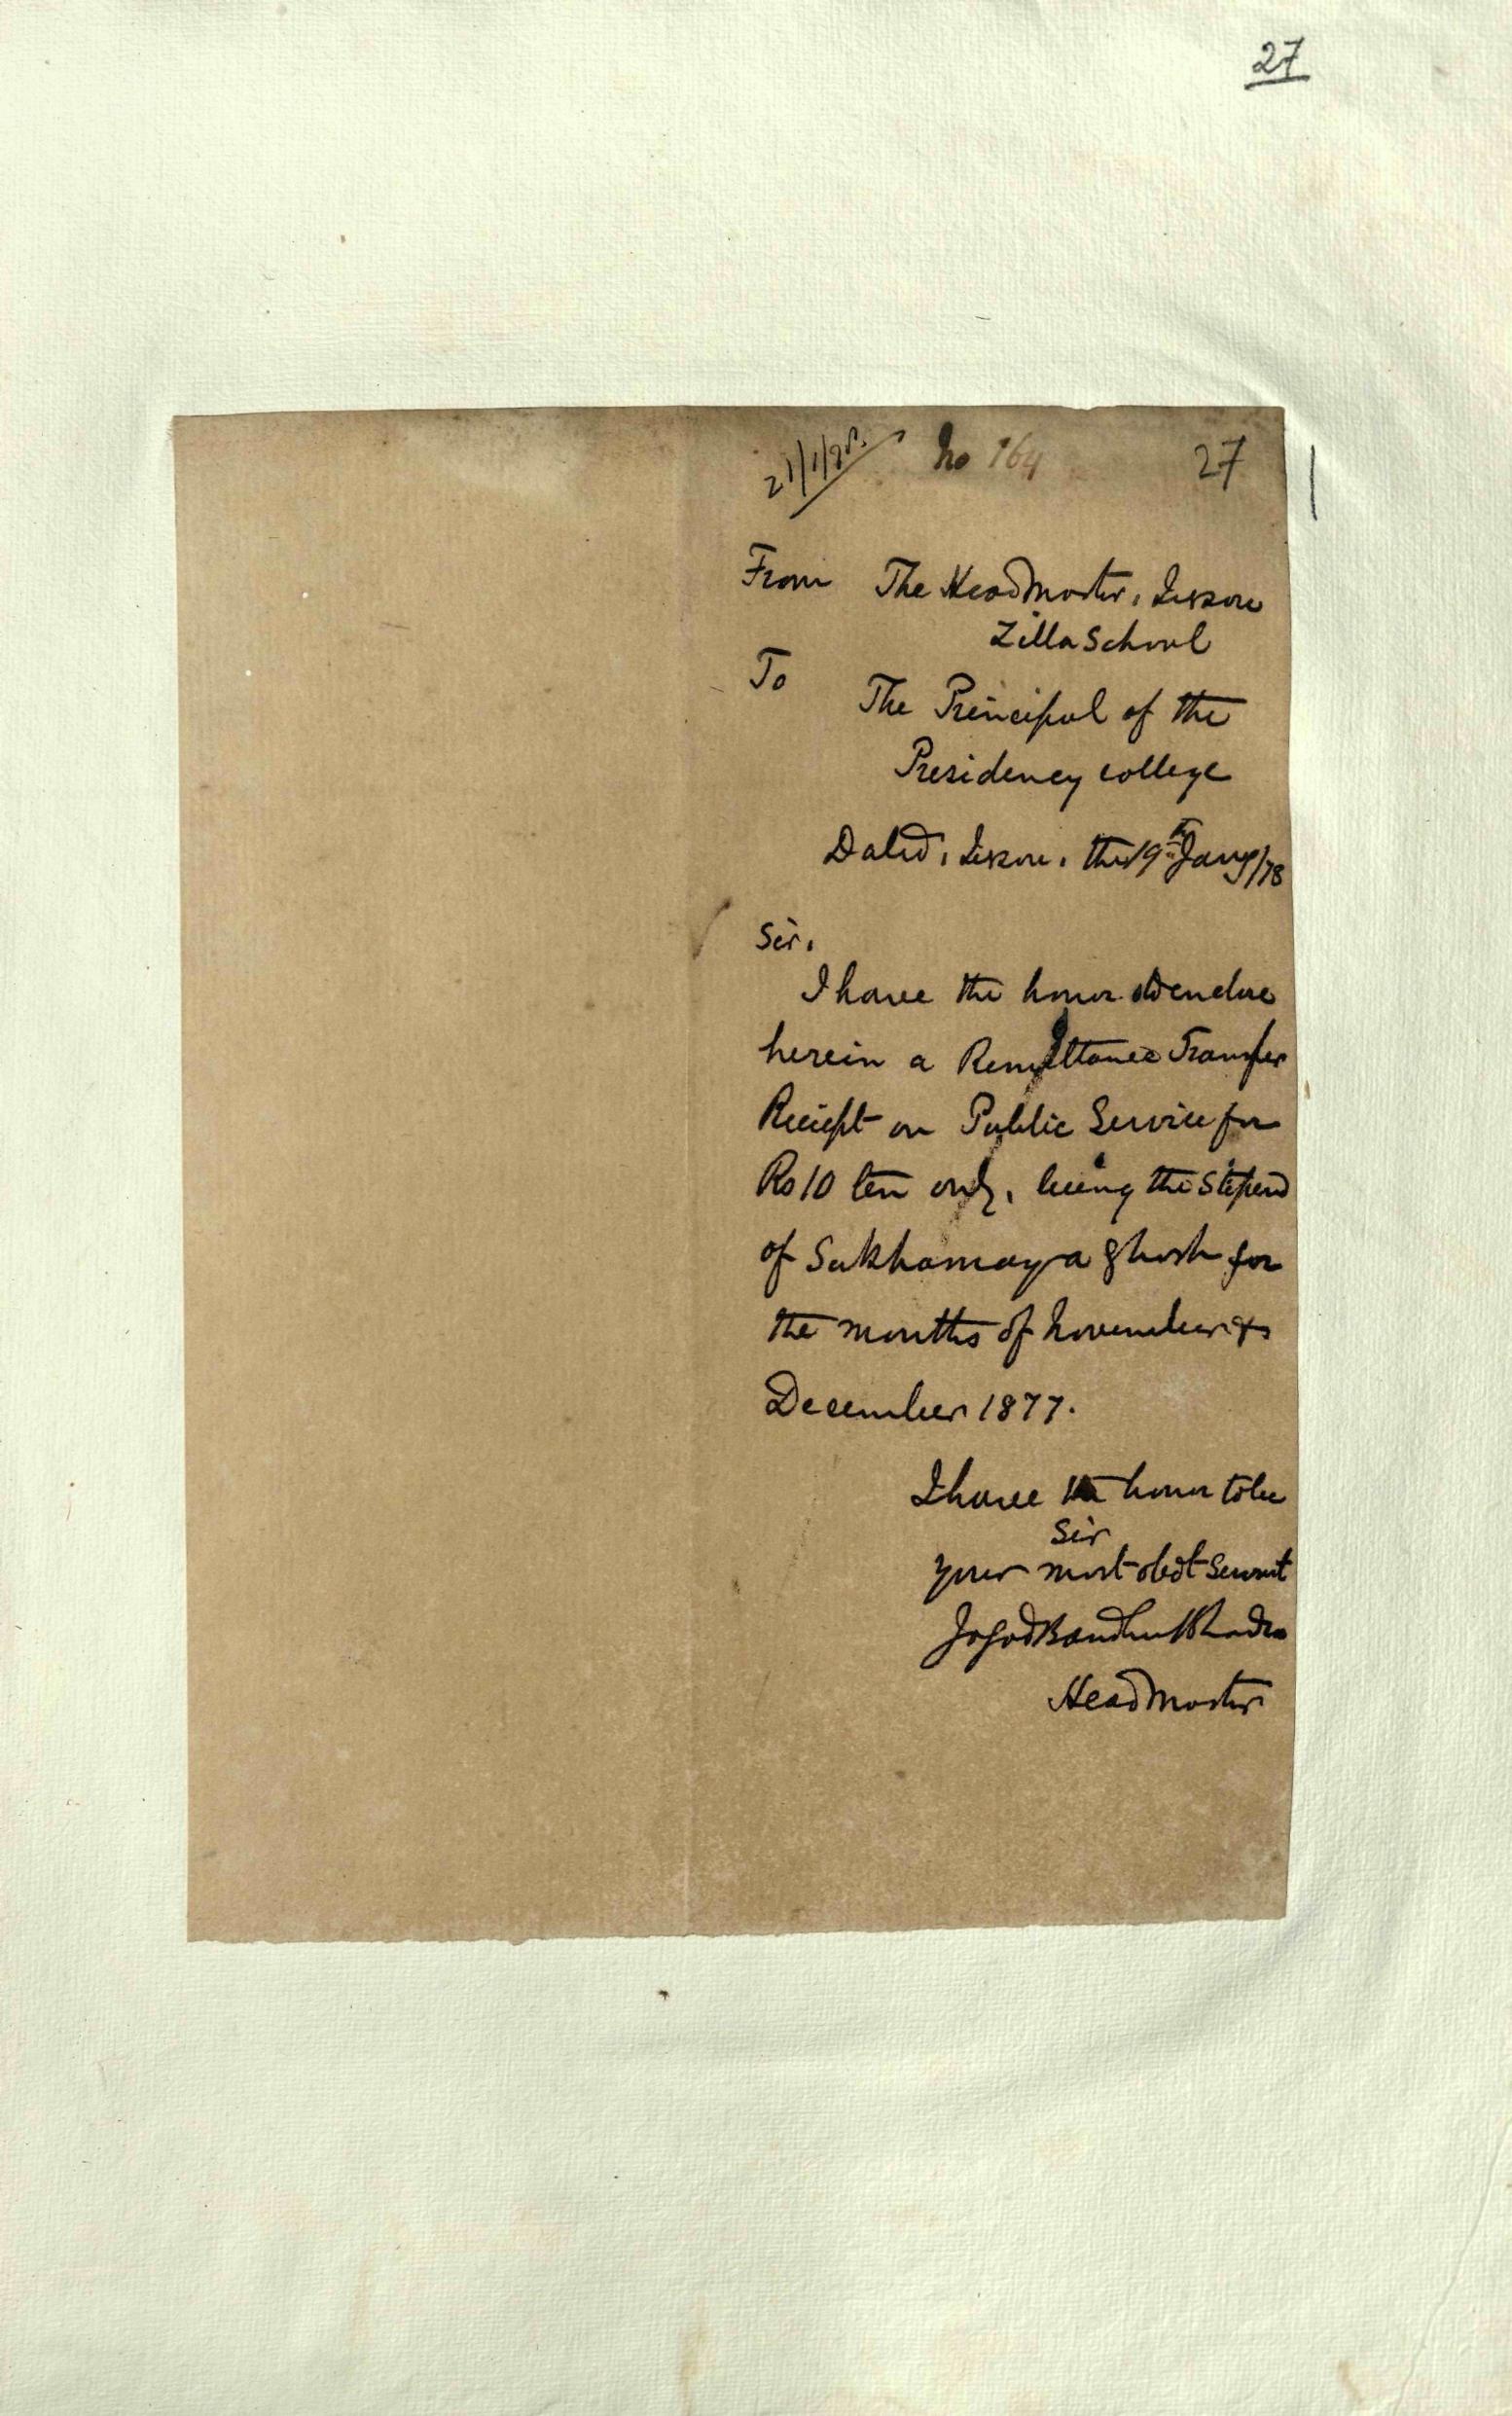 27
21/1/78. No 164 27
From The Head Master, Jessore
Zilla School
To
The Principal of the
Presidency College
Dated, Jessore, the 19th Jany/78
Sir,
I have the honor to enclose
herein a Remittance Transfer
Receipt on Public Service for
Rs 10 ten only, being the stipend
of Sukhamaya Ghosh for
the months of November &
December 1877.
I have the honor to be
Sir
your most obdt Servant
JagadBandhu Bhadra
Head Master